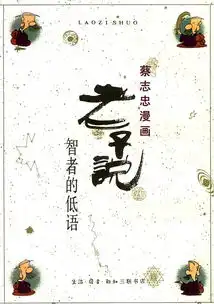 LAOZI SHUO
蔡志忠漫画
老子說
智者的低语
生活·读书·新知三联书店